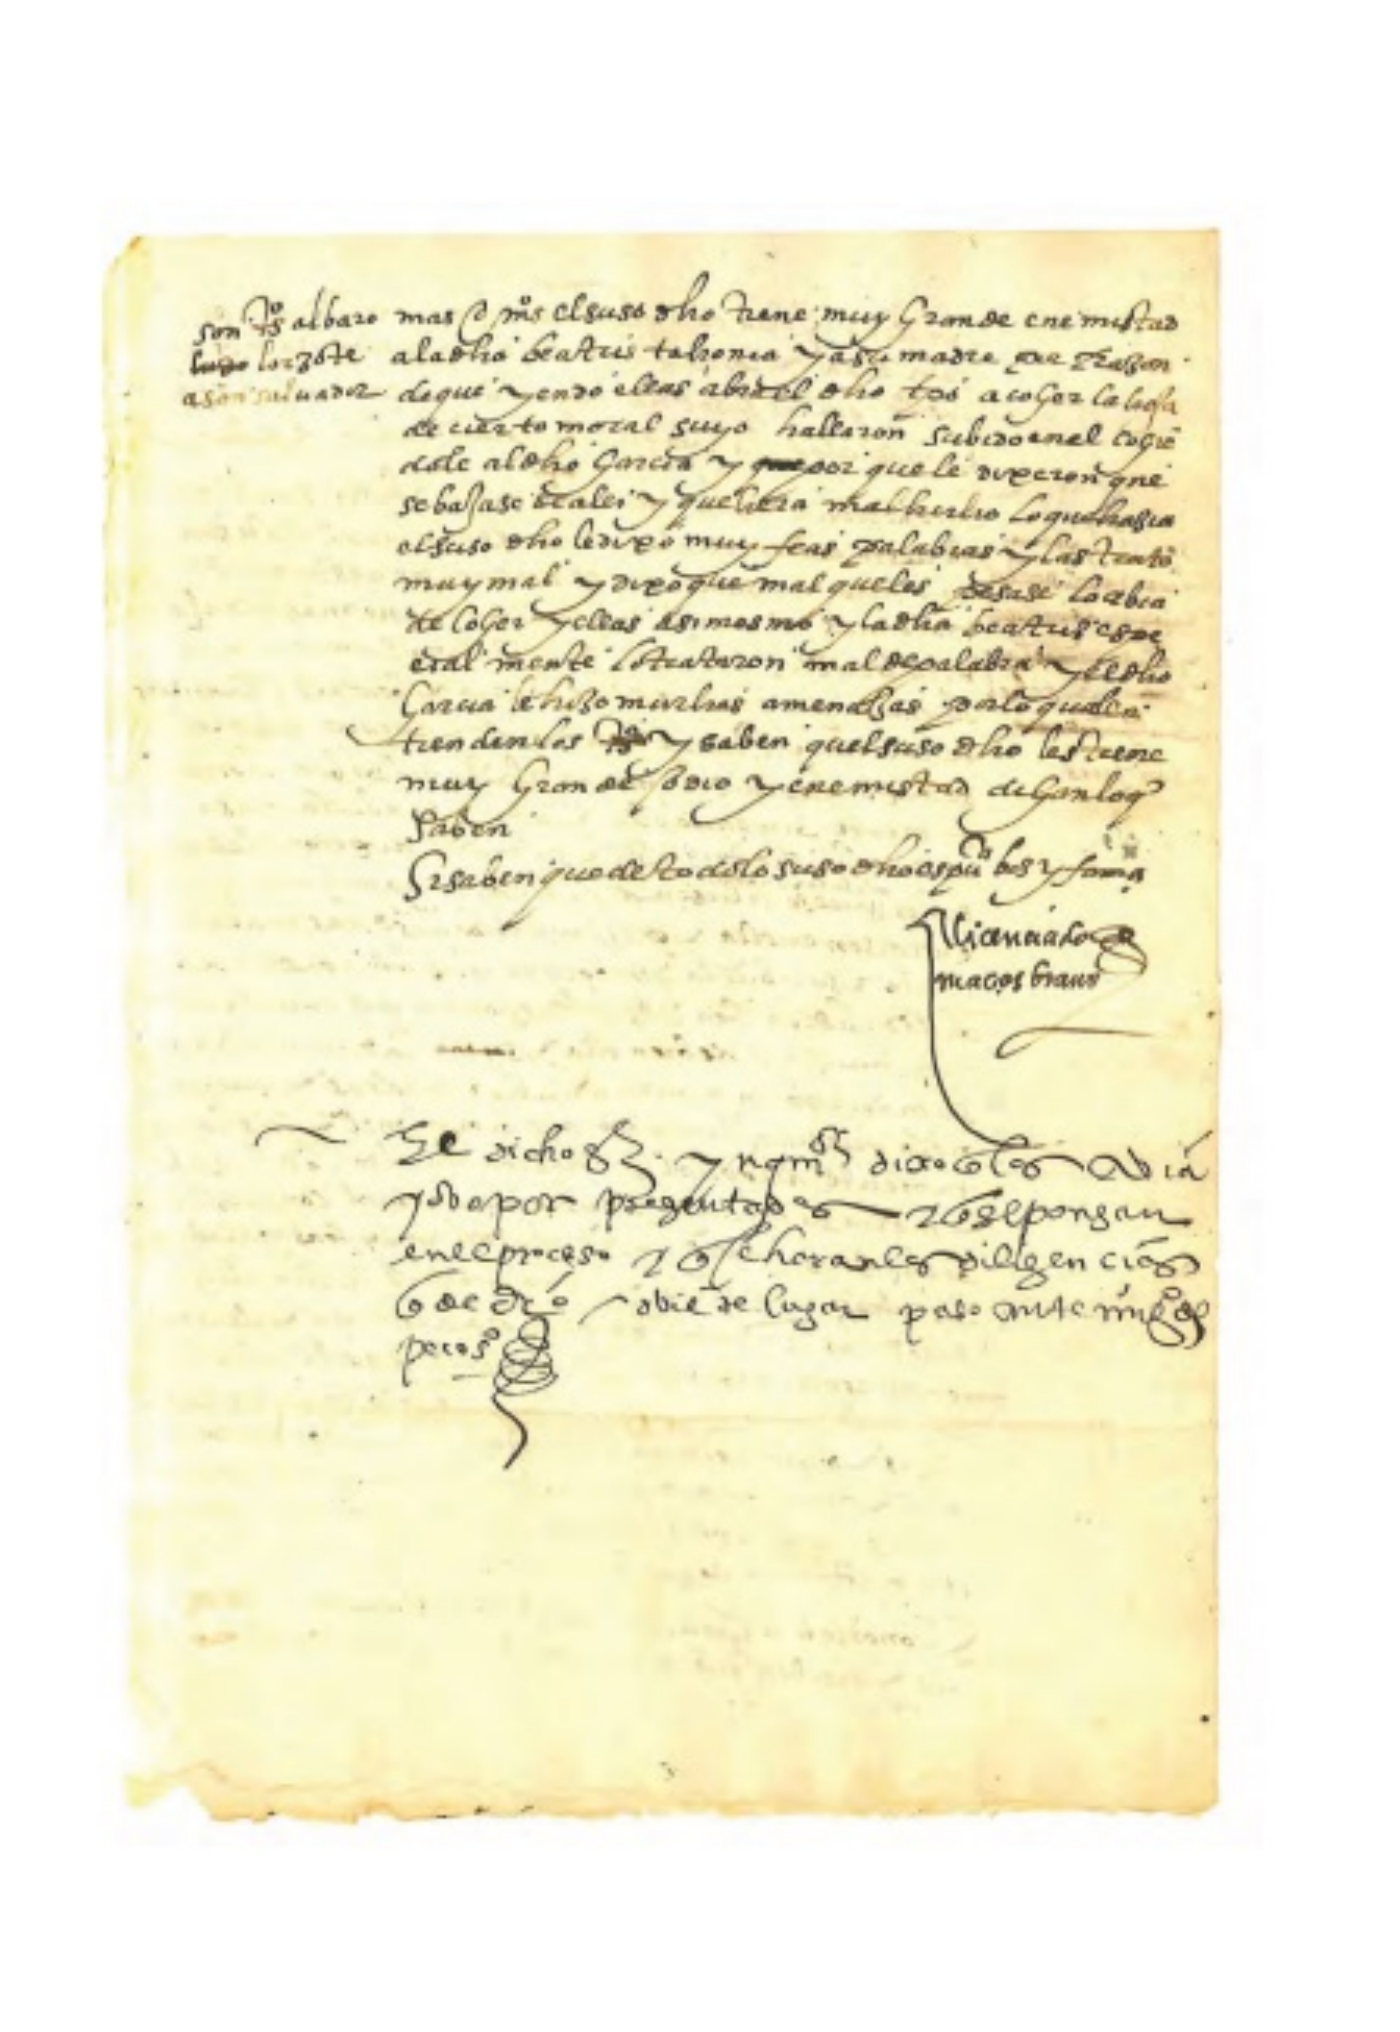 son tos albaro
lorzote
a son saluador
mas q mos el suso dho tiene muy Grande enemistad
a la dha beatris tahonia y a su madre por Razon
de que yendo ellas a coGer la hoja
de cierto moral suyo hallaron subido en el cogie
dole al dho Garcia y por que le dixeron que
se baJase de alli y que hera mal hecho lo que hazia
el suso dho le dixo muy feas palabras y las trato
muy mal y dixo que mal que les pesase lo abia
de coGer y ellas asimesmo y la dha beatris espe
cial mente lo trataron mal de palabra y el dho
Garcia le hizo muchas amenazas por lo qual en
tienden los tos y saben quel suso dho les tiene
muy Grande hodio y enemistad diGan lo q
saben
Si saben que de todo lo suso dho es pu boz y fama
El licenciado
marcos brauo
El dicho sr ynqor dixo q los abia
y obo por presentados y q se pongan
en el proceso y q se haran las diligencias
q de dro obie de lugar paso ante mi